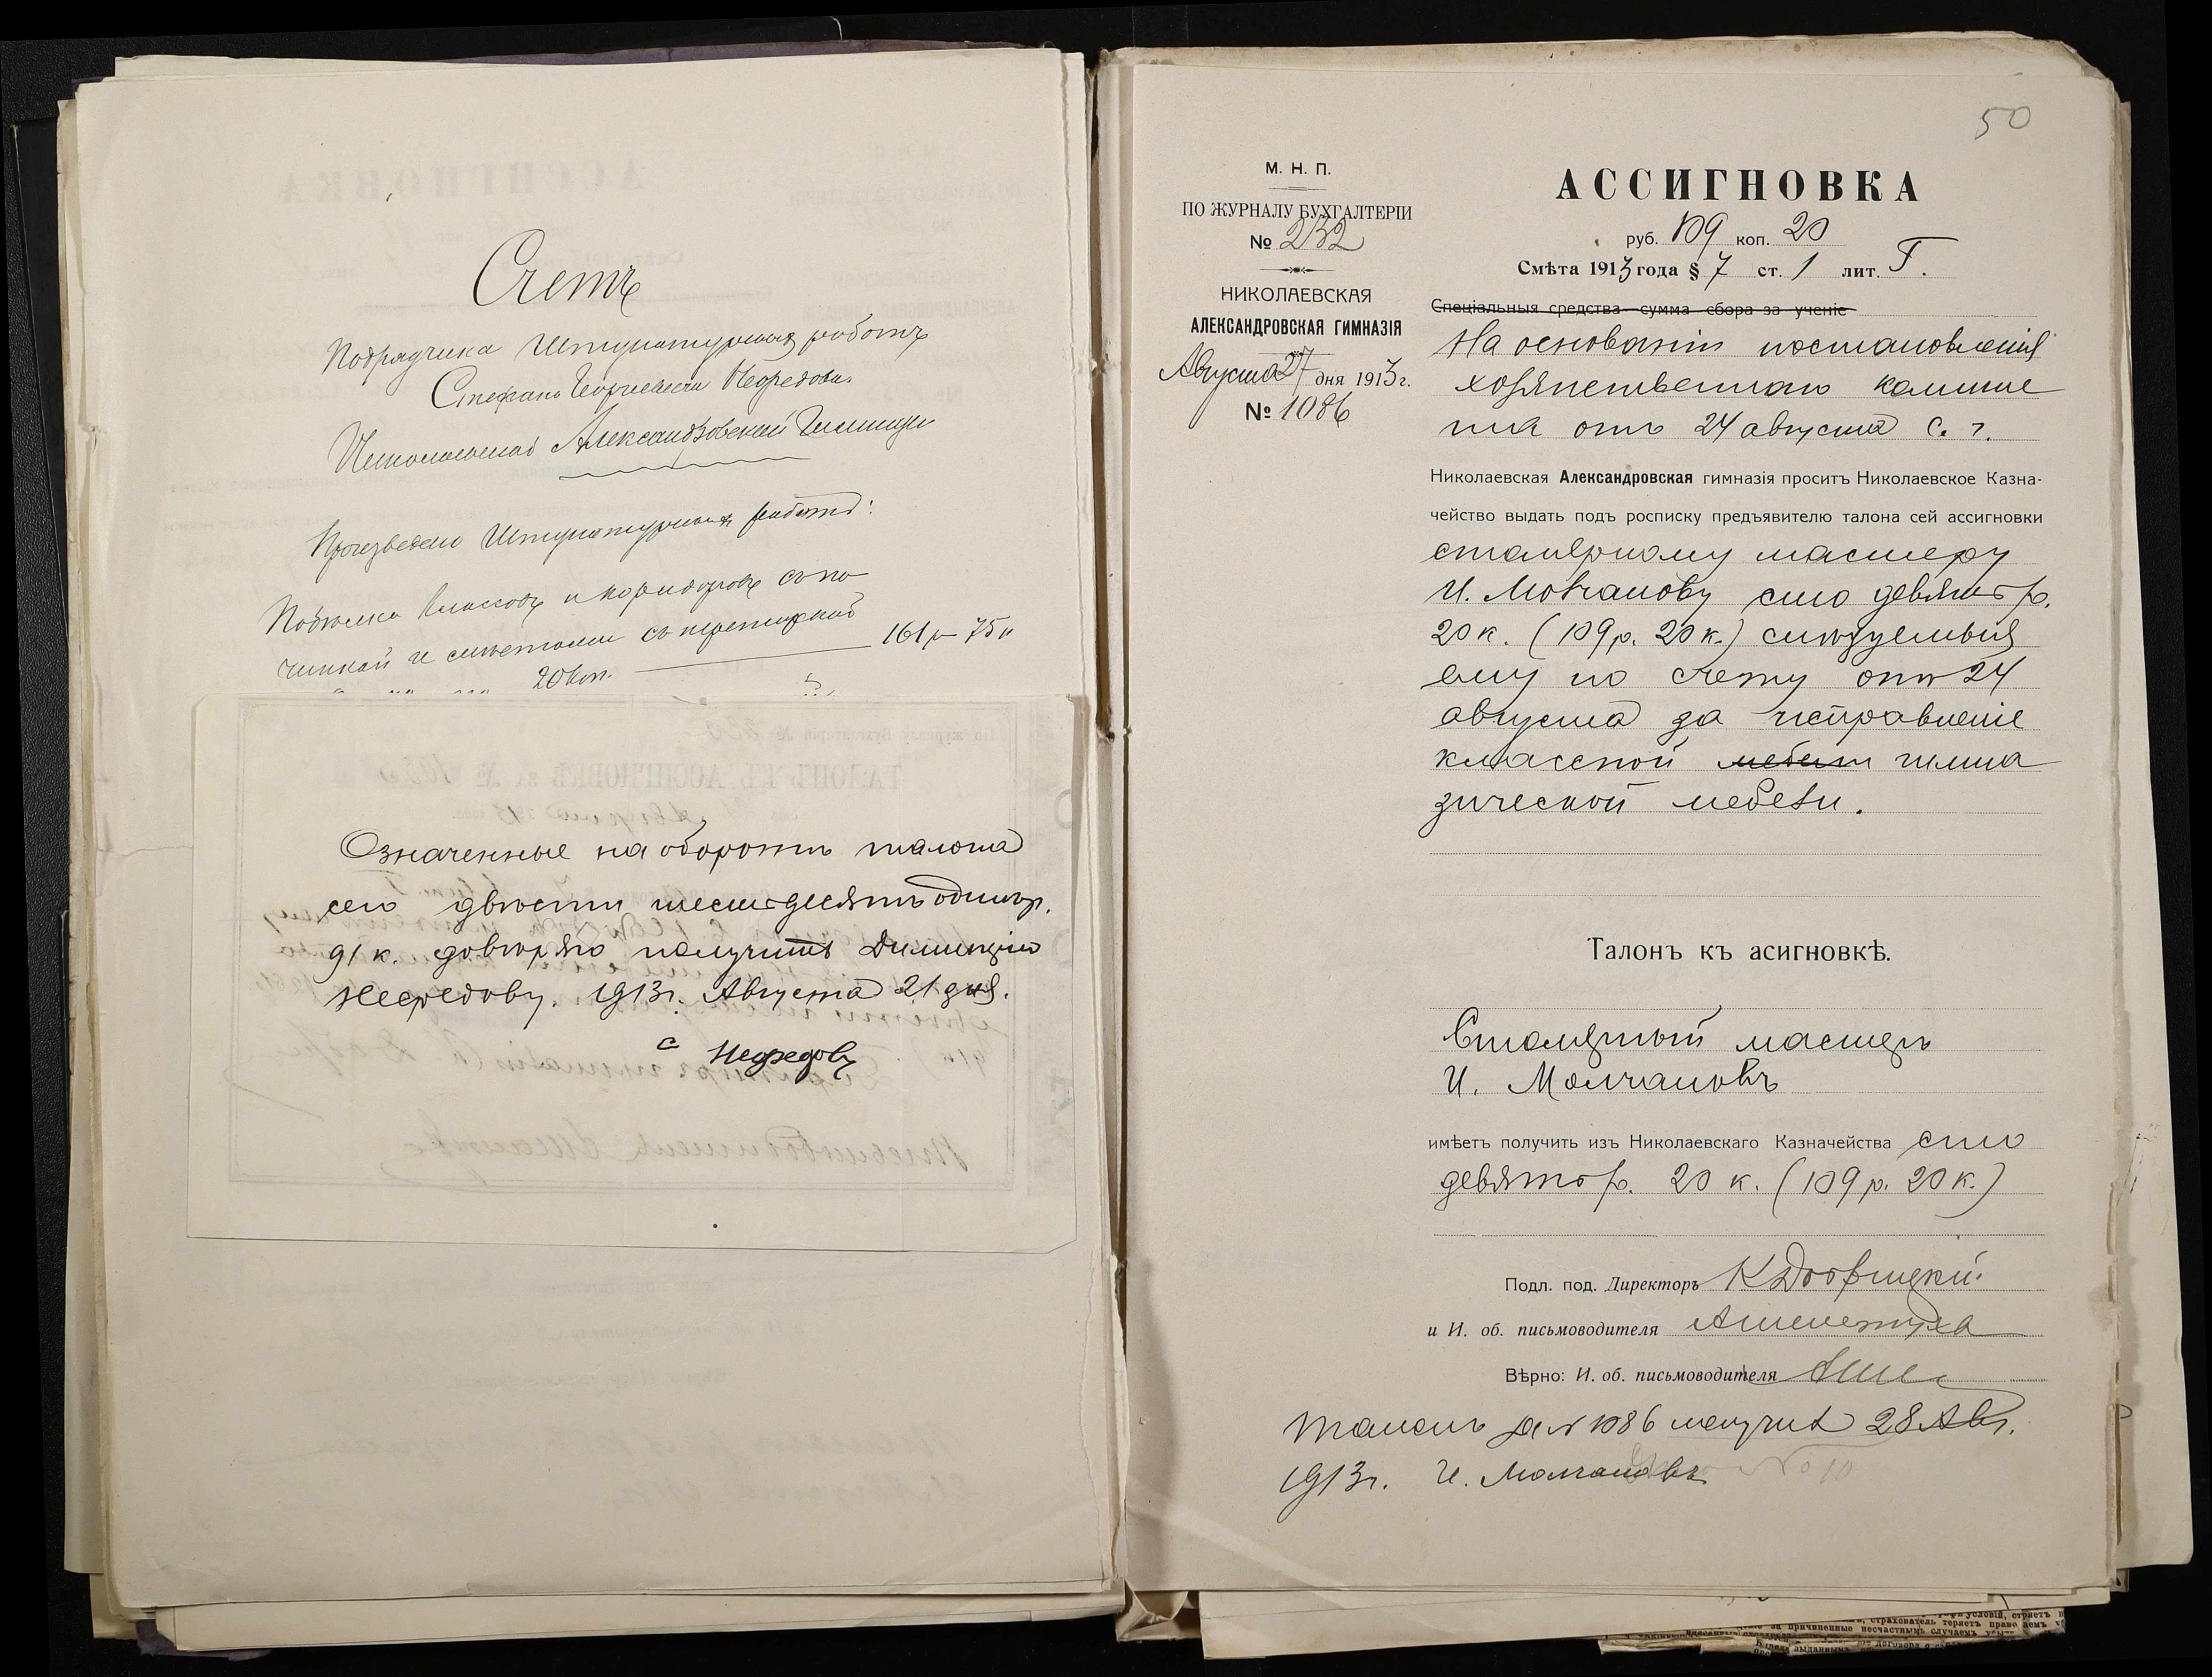 Счетъ
Подрядчика Штукатурныхъ работъ
Стефана Георгиевича Нефедова.
Николаевской Александровской Гимназіи
Произведено Штукатурныхъ работъ:
Побелка классовъ и коридоровъ съ по
чинкой и смѣтами съ
20 коп. 161 р 75 к
Означенные на оборотѣ талона
сего двѣсти шестьдесятъ одинъ р.
91 к. довѣряю получить Димитрію
Нефедову. 1913 г. Августа 21 дня.
С Нефедовъ
50
М. Н. П.
ПО ЖУРНАЛУ БУХГАЛТЕРІИ
№ 232
НИКОЛАЕВСКАЯ
АЛЕКСАНДРОВСКАЯ ГИМНАЗІЯ
Августа 27 дня 1913 г.
№ 1086
АССИГНОВКА
руб. 109 коп. 20
Смѣта 1913 года § 7 ст. 1 лит. Г.
Спеціальныя средства—сумма сбора за ученіе
На основаніи постановленія
хозяйственнаго комите
та отъ 24 августа с. г.
Николаевская Александровская гимназія проситъ Николаевское Казна-
чейство выдать подъ росписку предъявителю талона сей ассигновки
столярному мастеру
И. Молчанову сто девять р.
20 к. (109 р. 20 к.) слѣдуемыя
ему по счету отъ 24
августа за исправленіе
классной мебели гимна
зической мебели.
Талонъ къ асигновкѣ.
Столярный мастеръ
И. Молчановъ
имѣетъ получить изъ Николаевскаго Казначейства сто
девять р. 20 к. (109 р. 20 к.)
Подл. под. Директоръ К Дворницкій
и И. об. письмоводителя Ашелепуха
Вѣрно: И. об. письмоводителя
Талонъ за № 1086 получилъ 28 Авг.
1913 г. И. Молчановъ